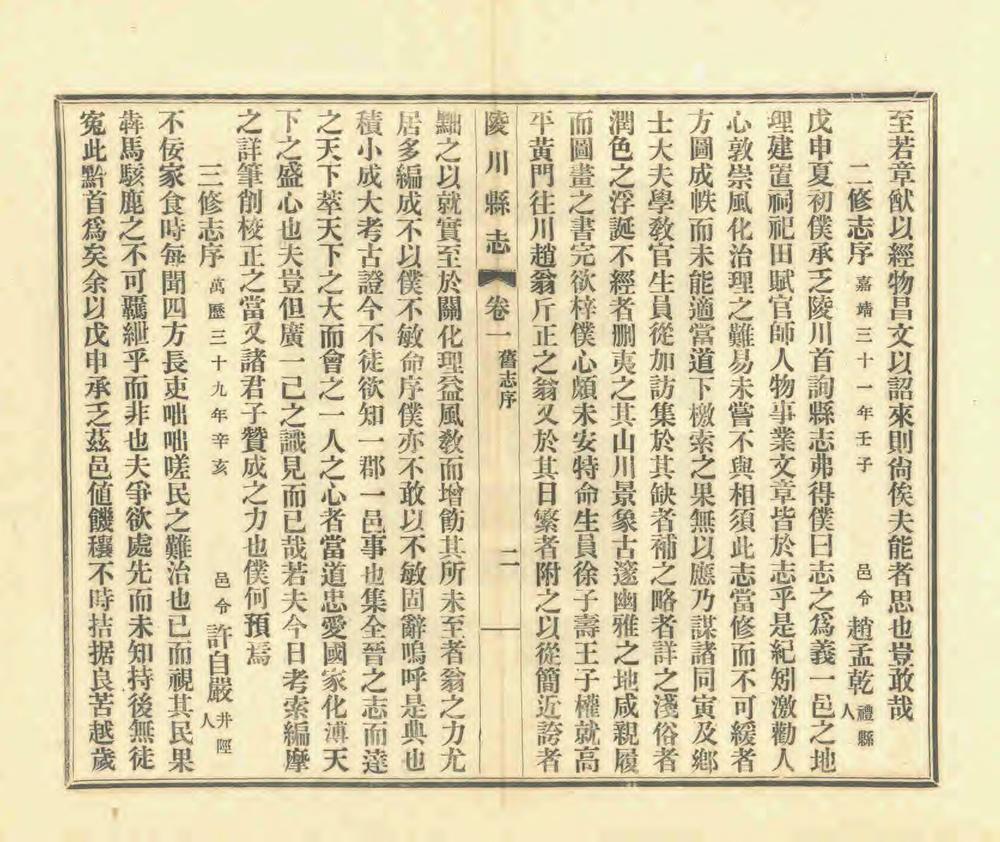 至若章猷以經物昌文以詔來則尙俟夫能者思也豈敢哉
二修志序 嘉靖三十一年壬子 邑令 趙孟乾 禮縣人
戊申夏初僕承乏陵川首詢縣志弗得僕曰志之爲義一邑之地
理建置祠祀田賦官師人物事業文章皆於志乎是紀矧激勸人
心敦崇風化治理之難易未嘗不與相須此志當修而不可緩者
方圖成帙而未能適當道下檄索之果無以應乃謀諸同寅及鄕
士大夫學敎官生員從加訪集於其缺者補之略者詳之淺俗者
潤色之浮誕不經者删夷之其山川景象古邃幽雅之地咸親履
而圖畫之書完欲梓僕心頗未安特命生員徐子壽王子權就高
平黃門往川趙翁斤正之翁又於其日繁者附之以從簡近誇者
陵川縣志 卷一 舊志序 二
黜之以就實至於關化理益風敎而增飭其所未至者翁之力尤
居多編成不以僕不敏命序僕亦不敢以不敏固辭嗚呼是典也
積小成大考古證今不徒欲知一郡一邑事也集全晉之志而達
之天下萃天下之大而會之一人之心者當道忠愛國家化溥天
下之盛心也夫豈但廣一己之識見而已哉若夫今日考索編摩
之詳筆削校正之當又諸君子贊成之力也僕何預焉
三修志序 萬曆三十九年辛亥 邑令 許自嚴 井陘人
不佞家食時每聞四方長吏咄咄嗟民之難治也已而視其民果
犇馬駭鹿之不可羈紲乎而非也夫爭欲處先而未知持後無徒
寃此黔首爲矣余以戊申承乏茲邑値饑穰不時拮据良苦越歲